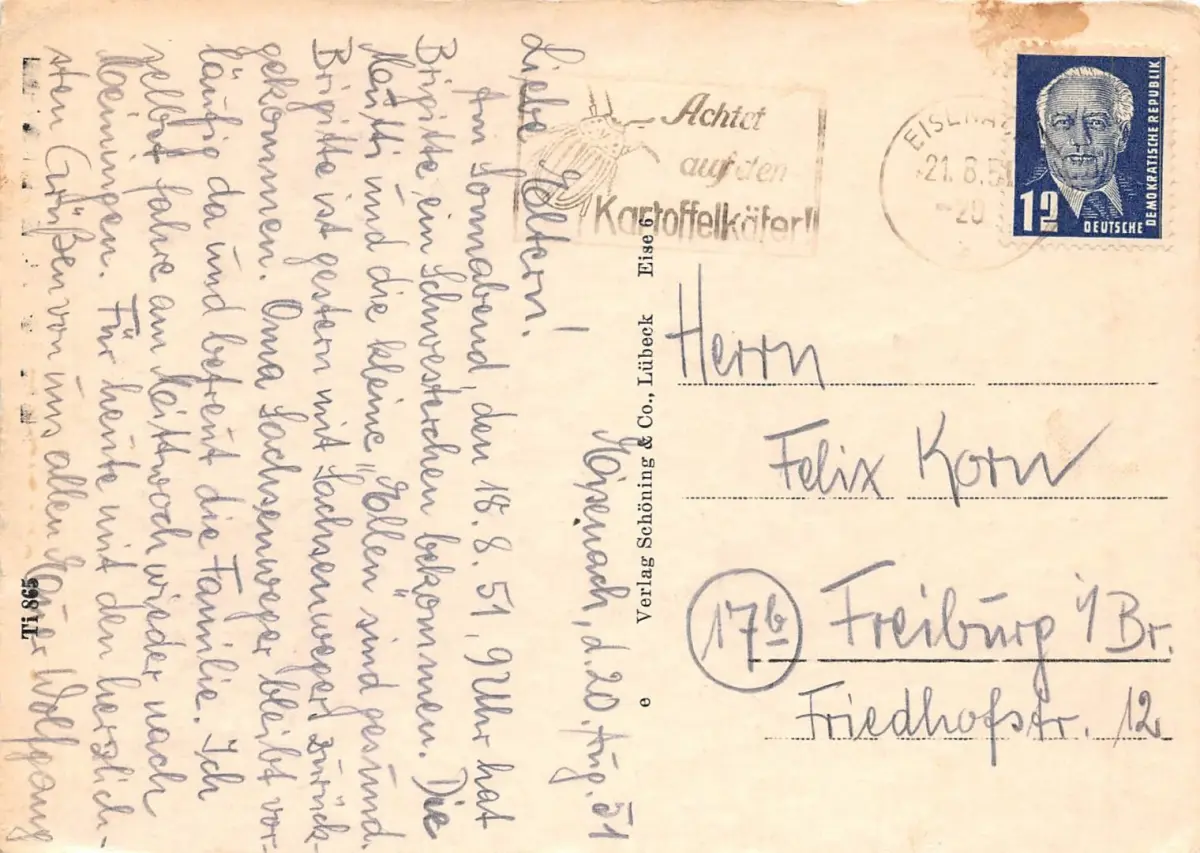 Eisenach, d. 20. Aug. 51
Liebe Eltern!
Am Sonnabend, den 18. 8. 51, 9 Uhr hat
Brigitte ein Schwesterchen bekommen. Die
Mutti und die kleine "Ellen" sind gesund.
Brigitte ist gestern mit Sachsenweger zurück-
gekommen. Oma Sachsenweger bleibt vor-
läufig da und betreut die Familie. Ich
selbst fahre am Mittwoch wieder nach
Meiningen. Für heute mit den herzlich-
sten Grüßen von uns allen Euer Wolfgang
Ti 865
e Verlag Schöning & Co., Lübeck Eise 6
Achtet
auf den
Kartoffelkäfer!!
21. 8. 51
-20
12
DEUTSCHE
DEMOKRATISCHE REPUBLIK
Herrn
Felix Korn
17b Freiburg i/Br.
Friedhofstr. 12